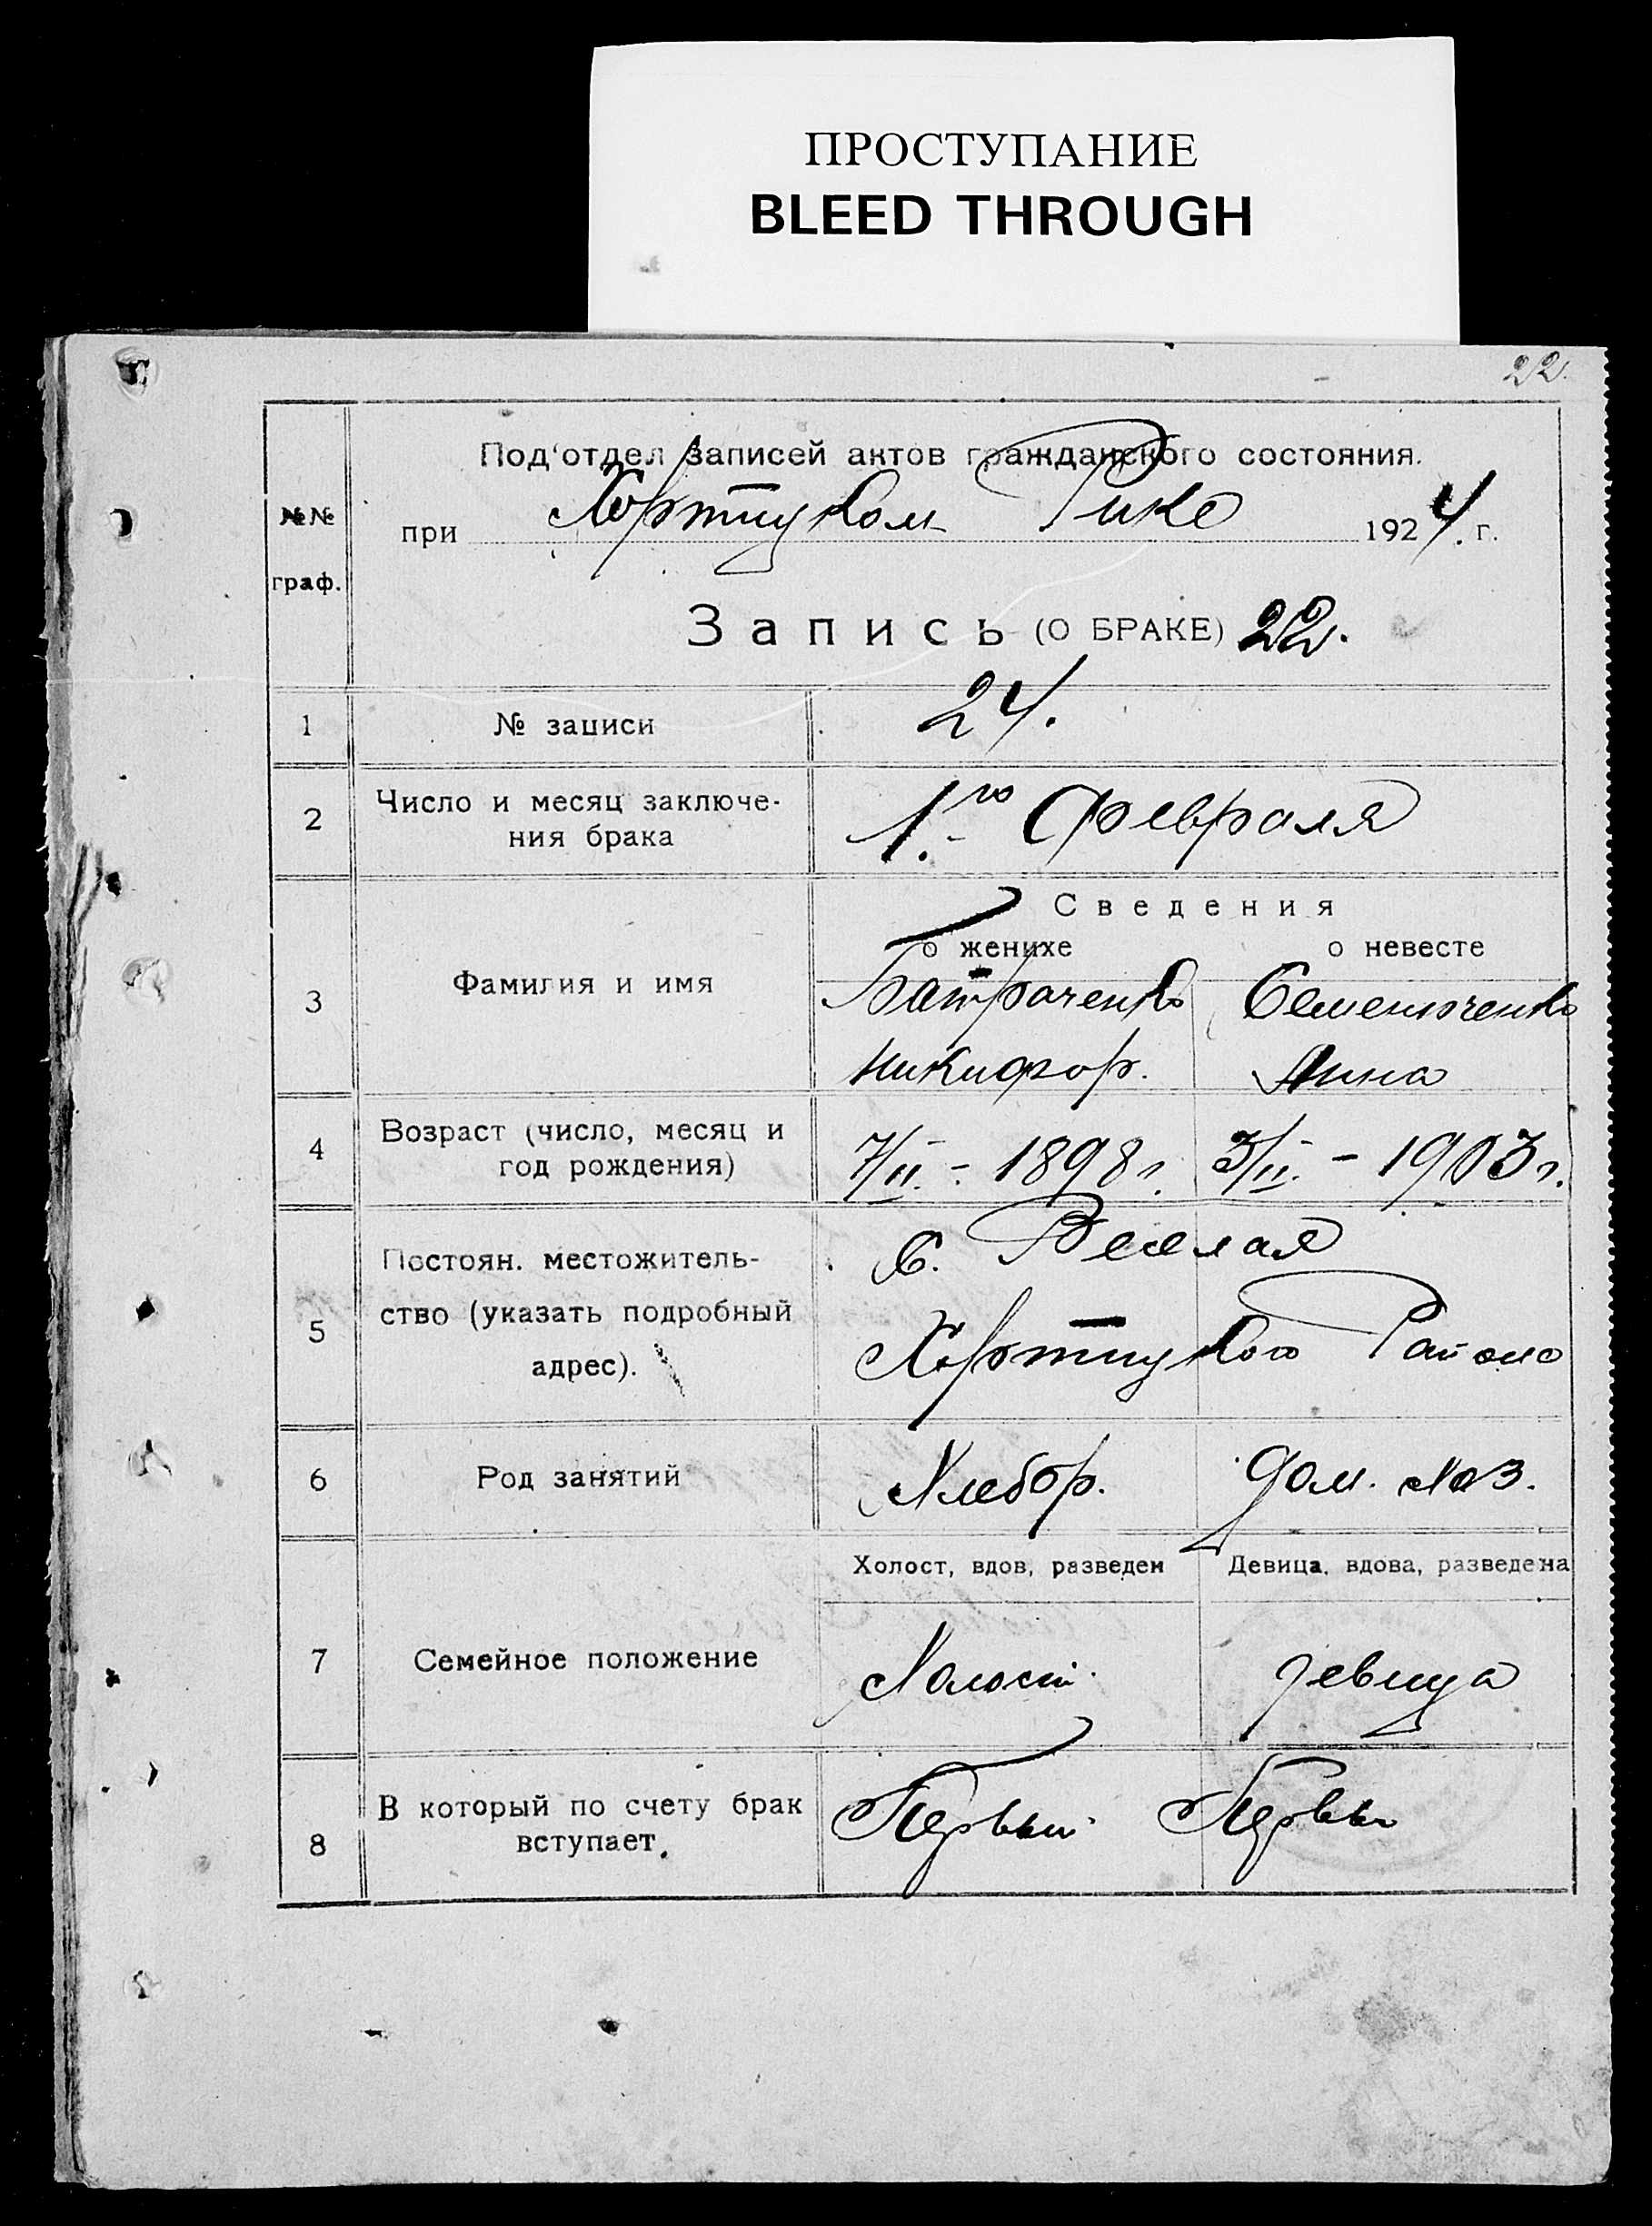 ПРОСТУПАНИЕ
BLEED THROUGH
22.
Под'отдел записей актов гражданского состояния.
№№ граф.
при Хортицком Рике 1924. г.
Запись (О БРАКЕ) 22.
1 № записи 24.
2 Число и месяц заключе-
ния брака 1.го Февраля
Сведения
о женихе о невесте
3 Фамилия и имя Батраченко Семенюченко
Никифор. Анна
4 Возраст (число, месяц и
год рождения) 7/II. - 1898 г. 3/II. - 1903 г.
5 Постоян. местожитель-
ство (указать подробный
адрес).
С. Веселая
Хортицкого Района
6 Род занятий Хлебор. Дом. хоз.
Холост, вдов, разведен Девица, вдова, разведена
7 Семейное положение Холост. девица
8 В который по счету брак
вступает. Первый Первы